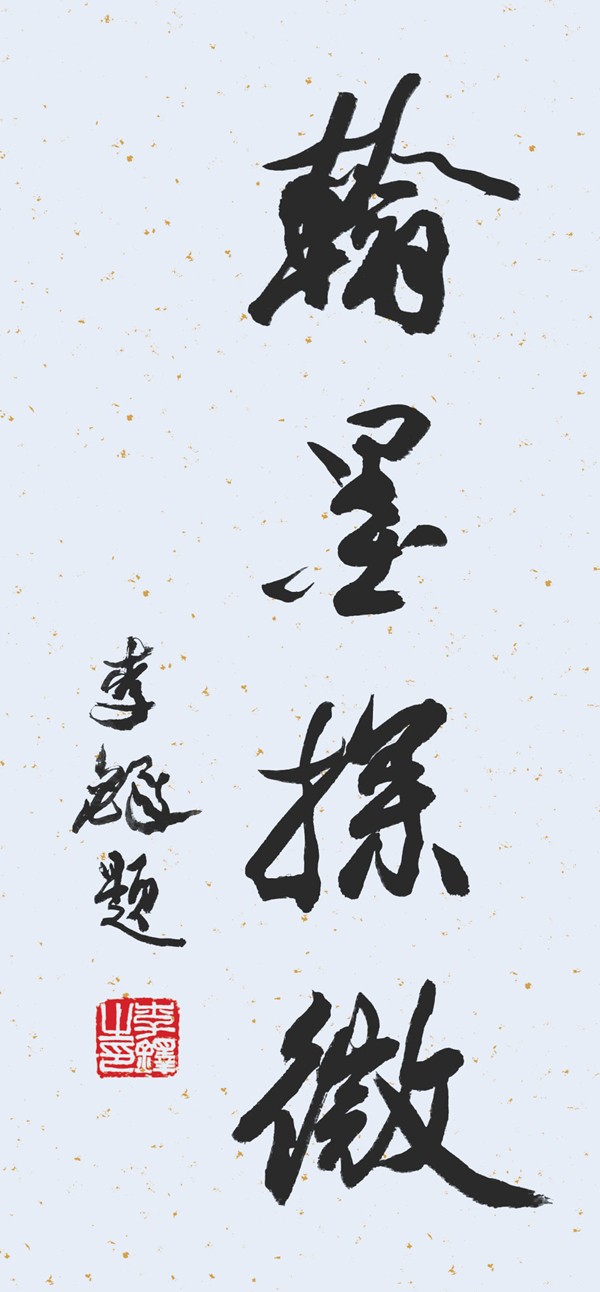 翰墨探微
李鐸題
李鐸之印